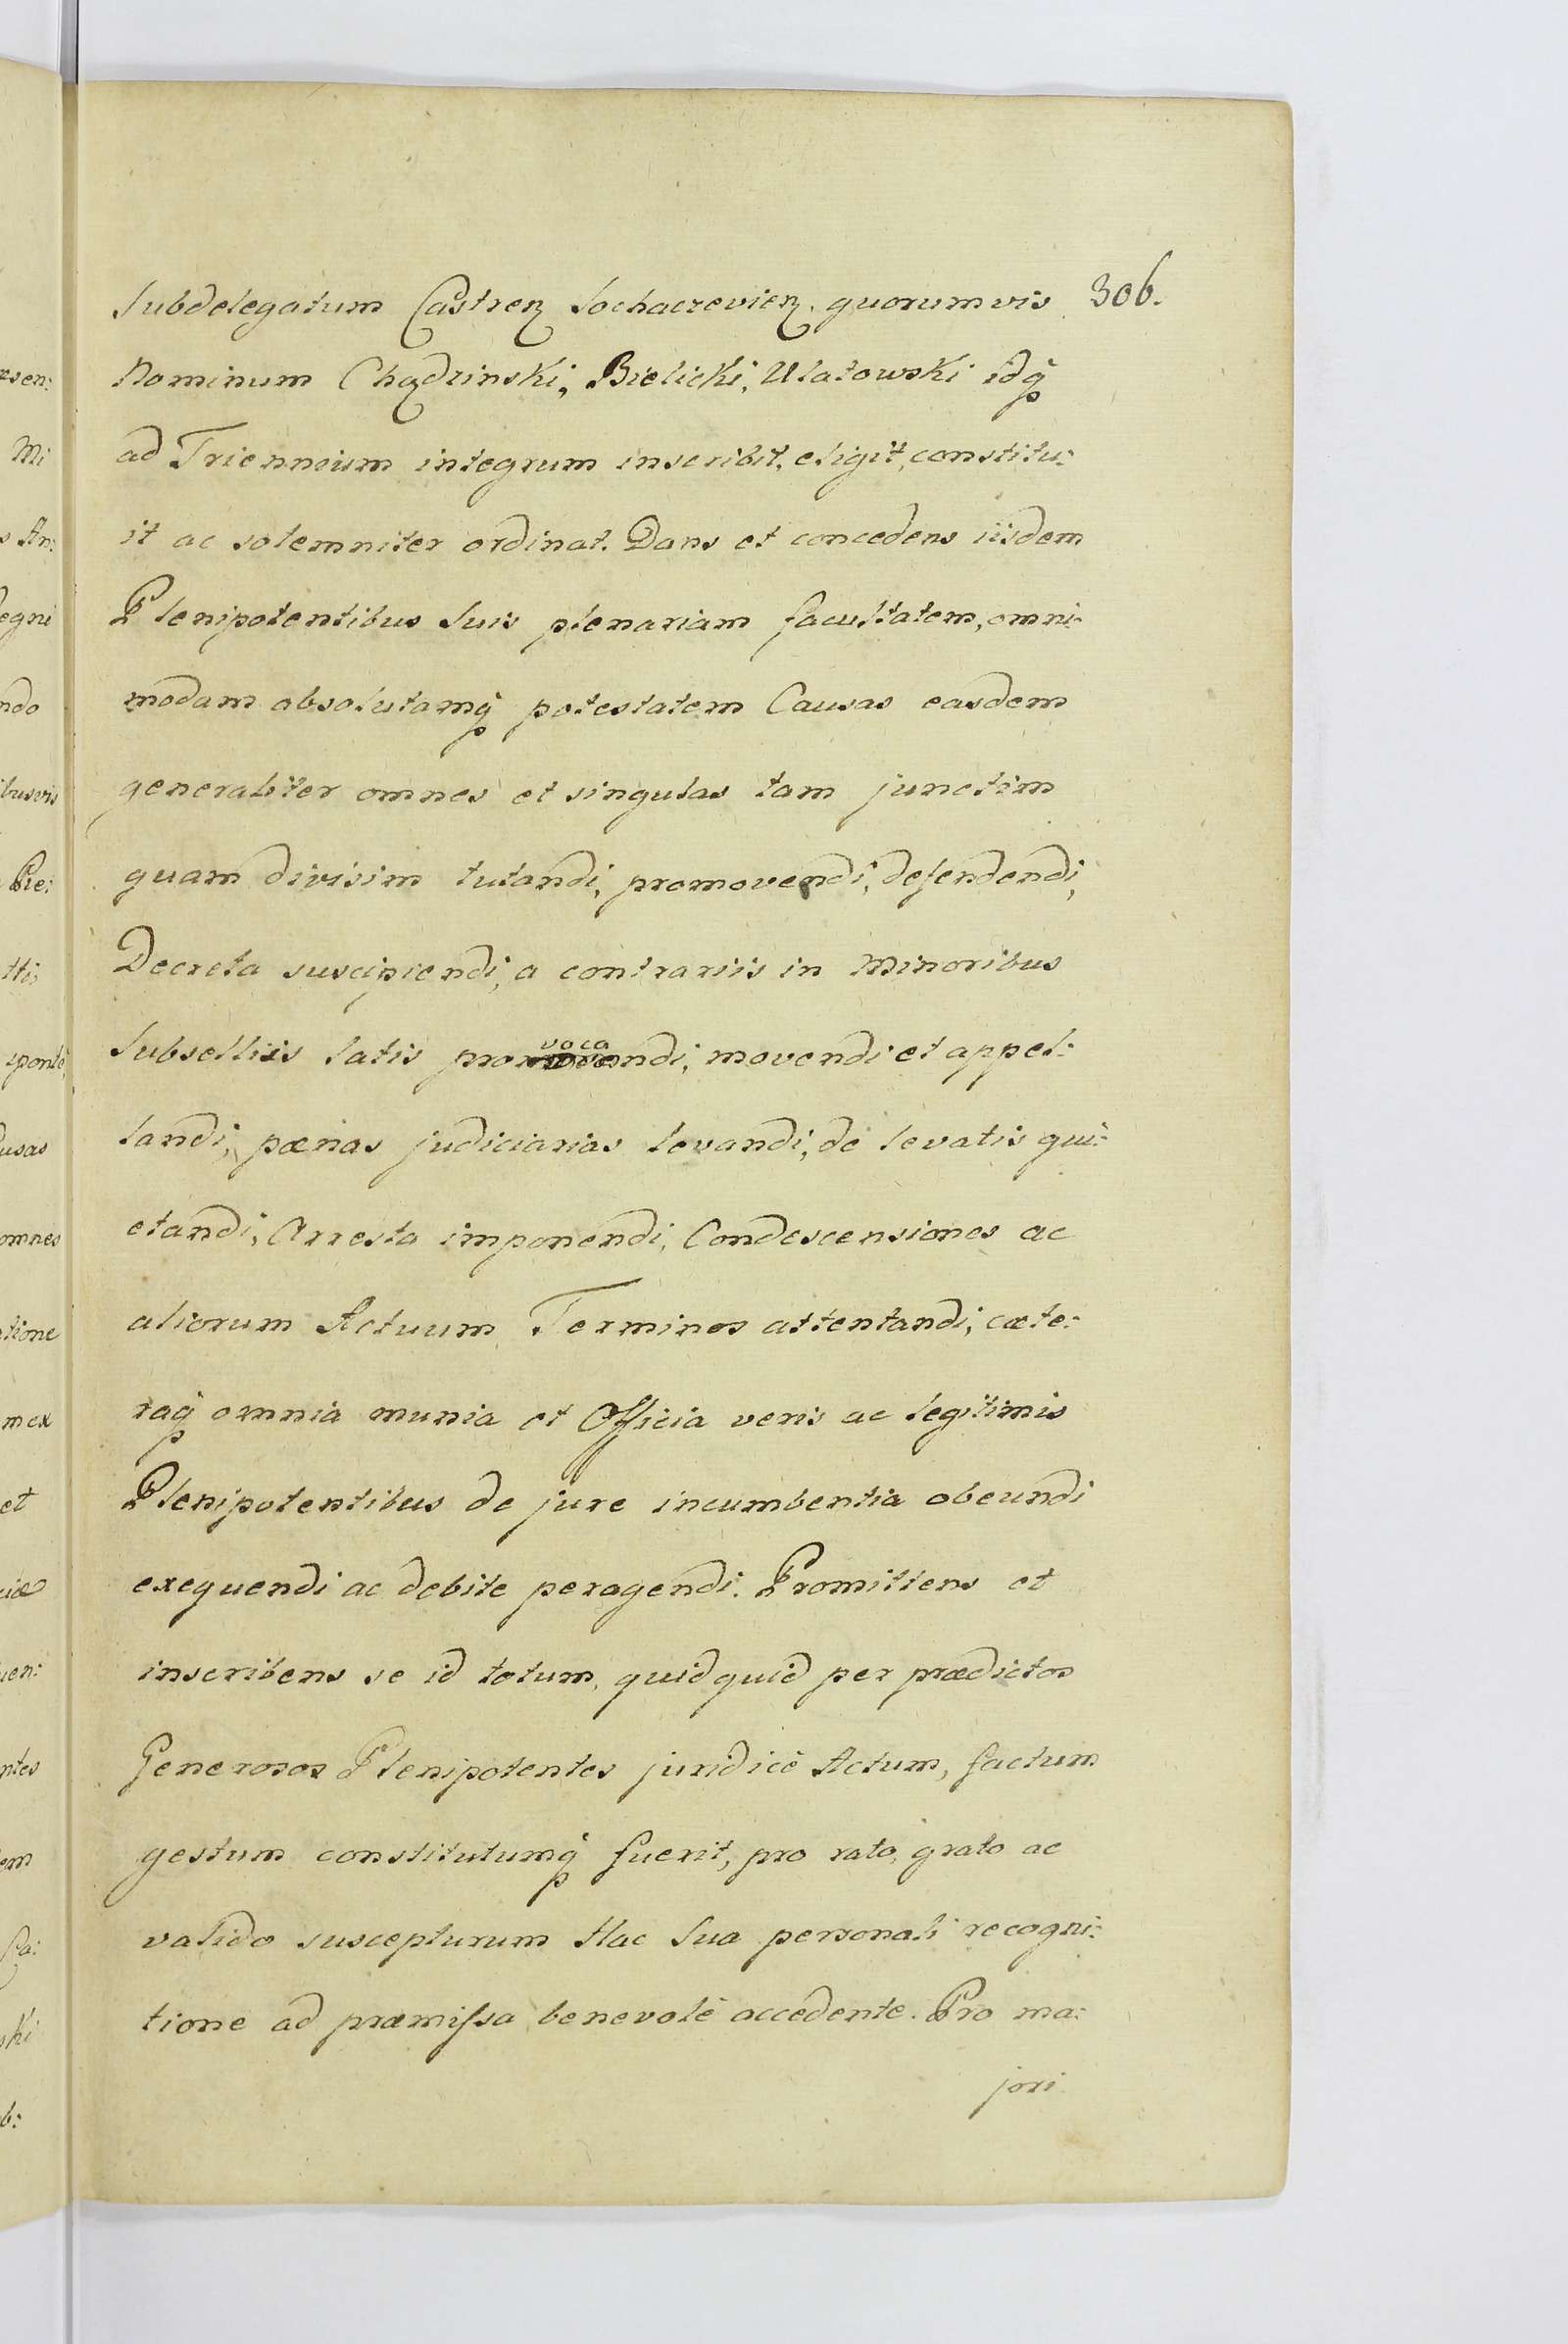 Subdelegatum Castren Sochaczevien. quorumvis 306.
Nominum Chądzinski, Bielicki, Ulatowski idq̃
ad Triennium integrum inscribit, eligit, constitu:
it ac solemniter ordinat. Dans et concedens iisdem
Plenipotentibus Suis plenariam facultatem, omni:
modam absolutamq̃ potestatem Causas easdem
generaliter omnes et singulas tam junctim
quam divisim tutandi, promovendi, defendendi,
Decreta suscipiendi, a contrariis in Minoribus
Subselliis latis provocandi, movendi et appel:
landi, pœnas judiciarias levandi, de levatis qui:
etandi, Arresta imponendi, Condescensiones ac
aliorum Actuum Terminos attentandi, cæte:
raq̃ omnia munia et Officia veris ac legitimis
Plenipotentibus de jure incumbentia obeundi
exequendi ac debite peragendi. Promittens et
inscribens se id totum, quidquid per prædictos
Generosos Plenipotentes juridicè Actum, factum
gestum constitutumq̃ fuerit, pro rato, grato ac
valido suscepturum Hac Sua personali recogni:
tione ad præmissa benevolè accedente. Pro ma:
jori
sen:
Mi
s An:
egni
ndo
ibusvis
Pre:
ttis
sponte,
usas
omnes
tione
m ex
et
iæ
en:
ntes
em
fa:
ski
b: